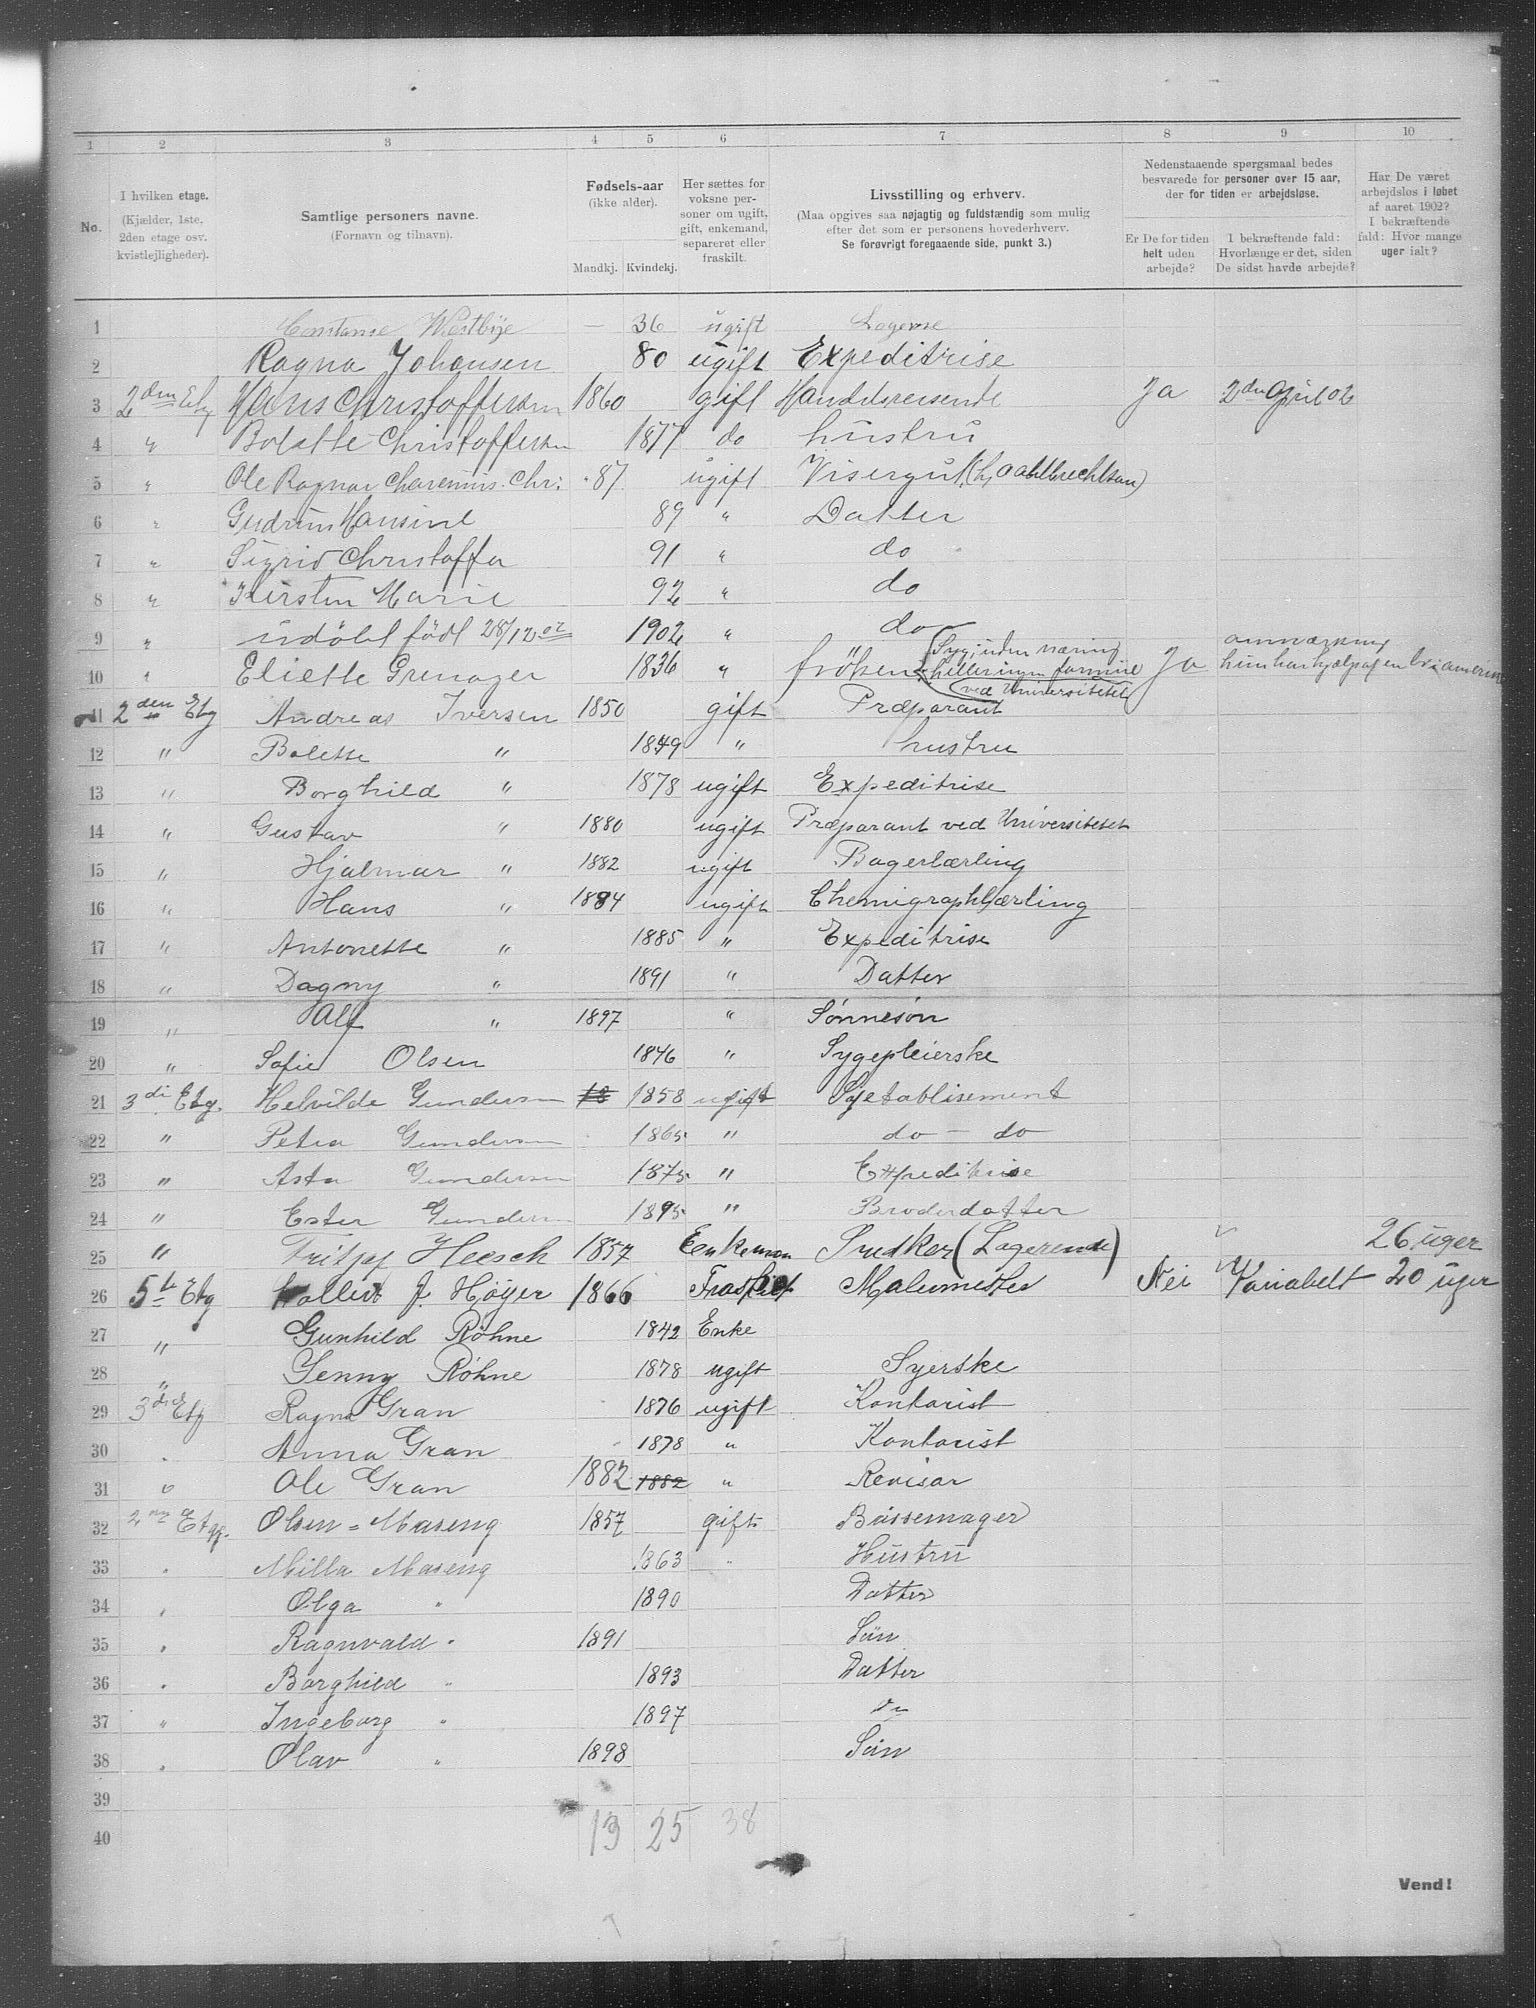 1 2 3 4 5 6 7 8 9 10
No.
I hvilken etage.
(Kjælder, 1ste,
2den etage osv.
kvistlejligheder).
Samtlige personers navne.
(Fornavn og tilnavn).
Fødsels-aar
(ikke alder).
Mandkj. Kvindekj.
Her sættes for
voksne per-
soner om ugift,
gift, enkemand,
separeret eller
fraskilt.
Livsstilling og erhverv.
(Maa opgives saa nøjagtig og fuldstændig som mulig
efter det som er personens hovederhverv.
Se forøvrigt foregaaende side, punkt 3.)
Nedenstaaende spørgsmaal bedes
besvarede for personer over 15 aar,
der for tiden er arbejdsløse.
Er De for tiden
helt uden
arbejde?
I bekræftende fald:
Hvorlænge er det, siden
De sidst havde arbejde?
Har De været
arbejdsløs i løbet
af aaret 1902?
I bekræftende
fald: Hvor mange
uger ialt?
1 Constanse Westbye — 36 ugift Logerende
2 Ragna Johansen 80 ugift Expeditrise
3 2den Etg Hans Christoffersen 1860 gift Handelsreisende Ja 2den April 02
4 " Bolette Christoffersen 1877 do hustru
5 " Ole Ragnar Chr: 87 ugift Visergut
6 " Gudrun Hansine 89 " Datter
7 " Sigrid Christoffa 91 " do
8 " Kirsten Marie 92 " do
9 " udøbt født 28/12 02 1902 " do
10 " Eliette Grenager 1836 " frøken Syg, uden næring Ja anmærkning hun har hjælp af en bror i amerika
11 2den Etg Andreas Iversen 1850 gift Præparant ved Universitetet
12 " Bolette " 1849 " hustru
13 " Borghild " 1878 ugift Expeditrise
14 " Gustav " 1880 ugift Præparant ved Universitetet
15 " Hjalmar " 1882 ugift Bagerlærling
16 " Hans " 1884 ugift Chemigraphlærling
17 " Antonette " 1885 " Expeditrise
18 " Dagny " 1891 " Datter
19 " Alf " 1897 " Sønnesøn
20 " Sofie Olsen 1846 " Sygepleierske
21 3di Etg. Helvilde Gundersen 18 1858 ugift Syetablisement
22 " Petra Gundersen 1865 " do — do
23 " Asta Gundersen 1875 " Expeditrise
24 " Ester Gundersen 1895 " Broderdatter
25 " Heesch 1857 Enkeman Snedker (Logerende) 26 uger
26 5te Etg J. Høyer 1866 Fraskilt Malermester Nei Variabelt 20 uger
27 " Gunhild Røhne 1842 Enke
28 " Jenny Røhne 1878 ugift Syerske
29 3die Etg Ragna Gran 1876 ugift Kontorist
30 . Anna Gran 1878 " Kontorist
31 " Ole Gran 1882 1882 " Revisor
32 2den Etg. Olsen = Maseng 1857 gift Bøssemager
33 . Milla Maseng 1863 " Hustru
34 . Olga " 1890 Datter
35 . Ragnvald " 1891 Søn
36 . Borghild " 1893 Datter
37 " Ingeborg " 1897 do
38 . Olav " 1898 Søn
39
40 13 25 38
Vend!